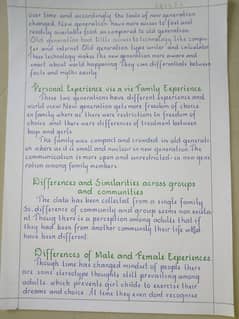 over time and accordingly the taste of new generation
changed. New generation have more access to fast and
readily available food as compared to old generation
Old generation had little access to technology like compu-
ter and internet Old generation type writer and calculator
These technology makes the new generation more aware and
smart about world happening They can differentiate between
facts and myths easily
Personal Experience vis a vis Family Experience
These two generations have different experience and
world view New generation gets more freedom of choice
in family where as there were restrictions to freedom of
choice and there were differences of treatment between
boys and girls
The family was compact and crowded in old generati-
on where as it is small and nuclear in new generation The
communication is more open and unrestricted in new gene
ration among family members
Differences and Similarities across groups
and communities
The data has been collected from a single family
So difference of community and group seems non existen
at Though there is a perception among adults that if
they had been from another community their life would
have been different
Differences of Male and Female Experiences
Though time has changed mindset of people there
are some stereotype thoughts still prevailing among
adults which prevents girl childs to exercise their
dreams and choice. At time they dont recognise